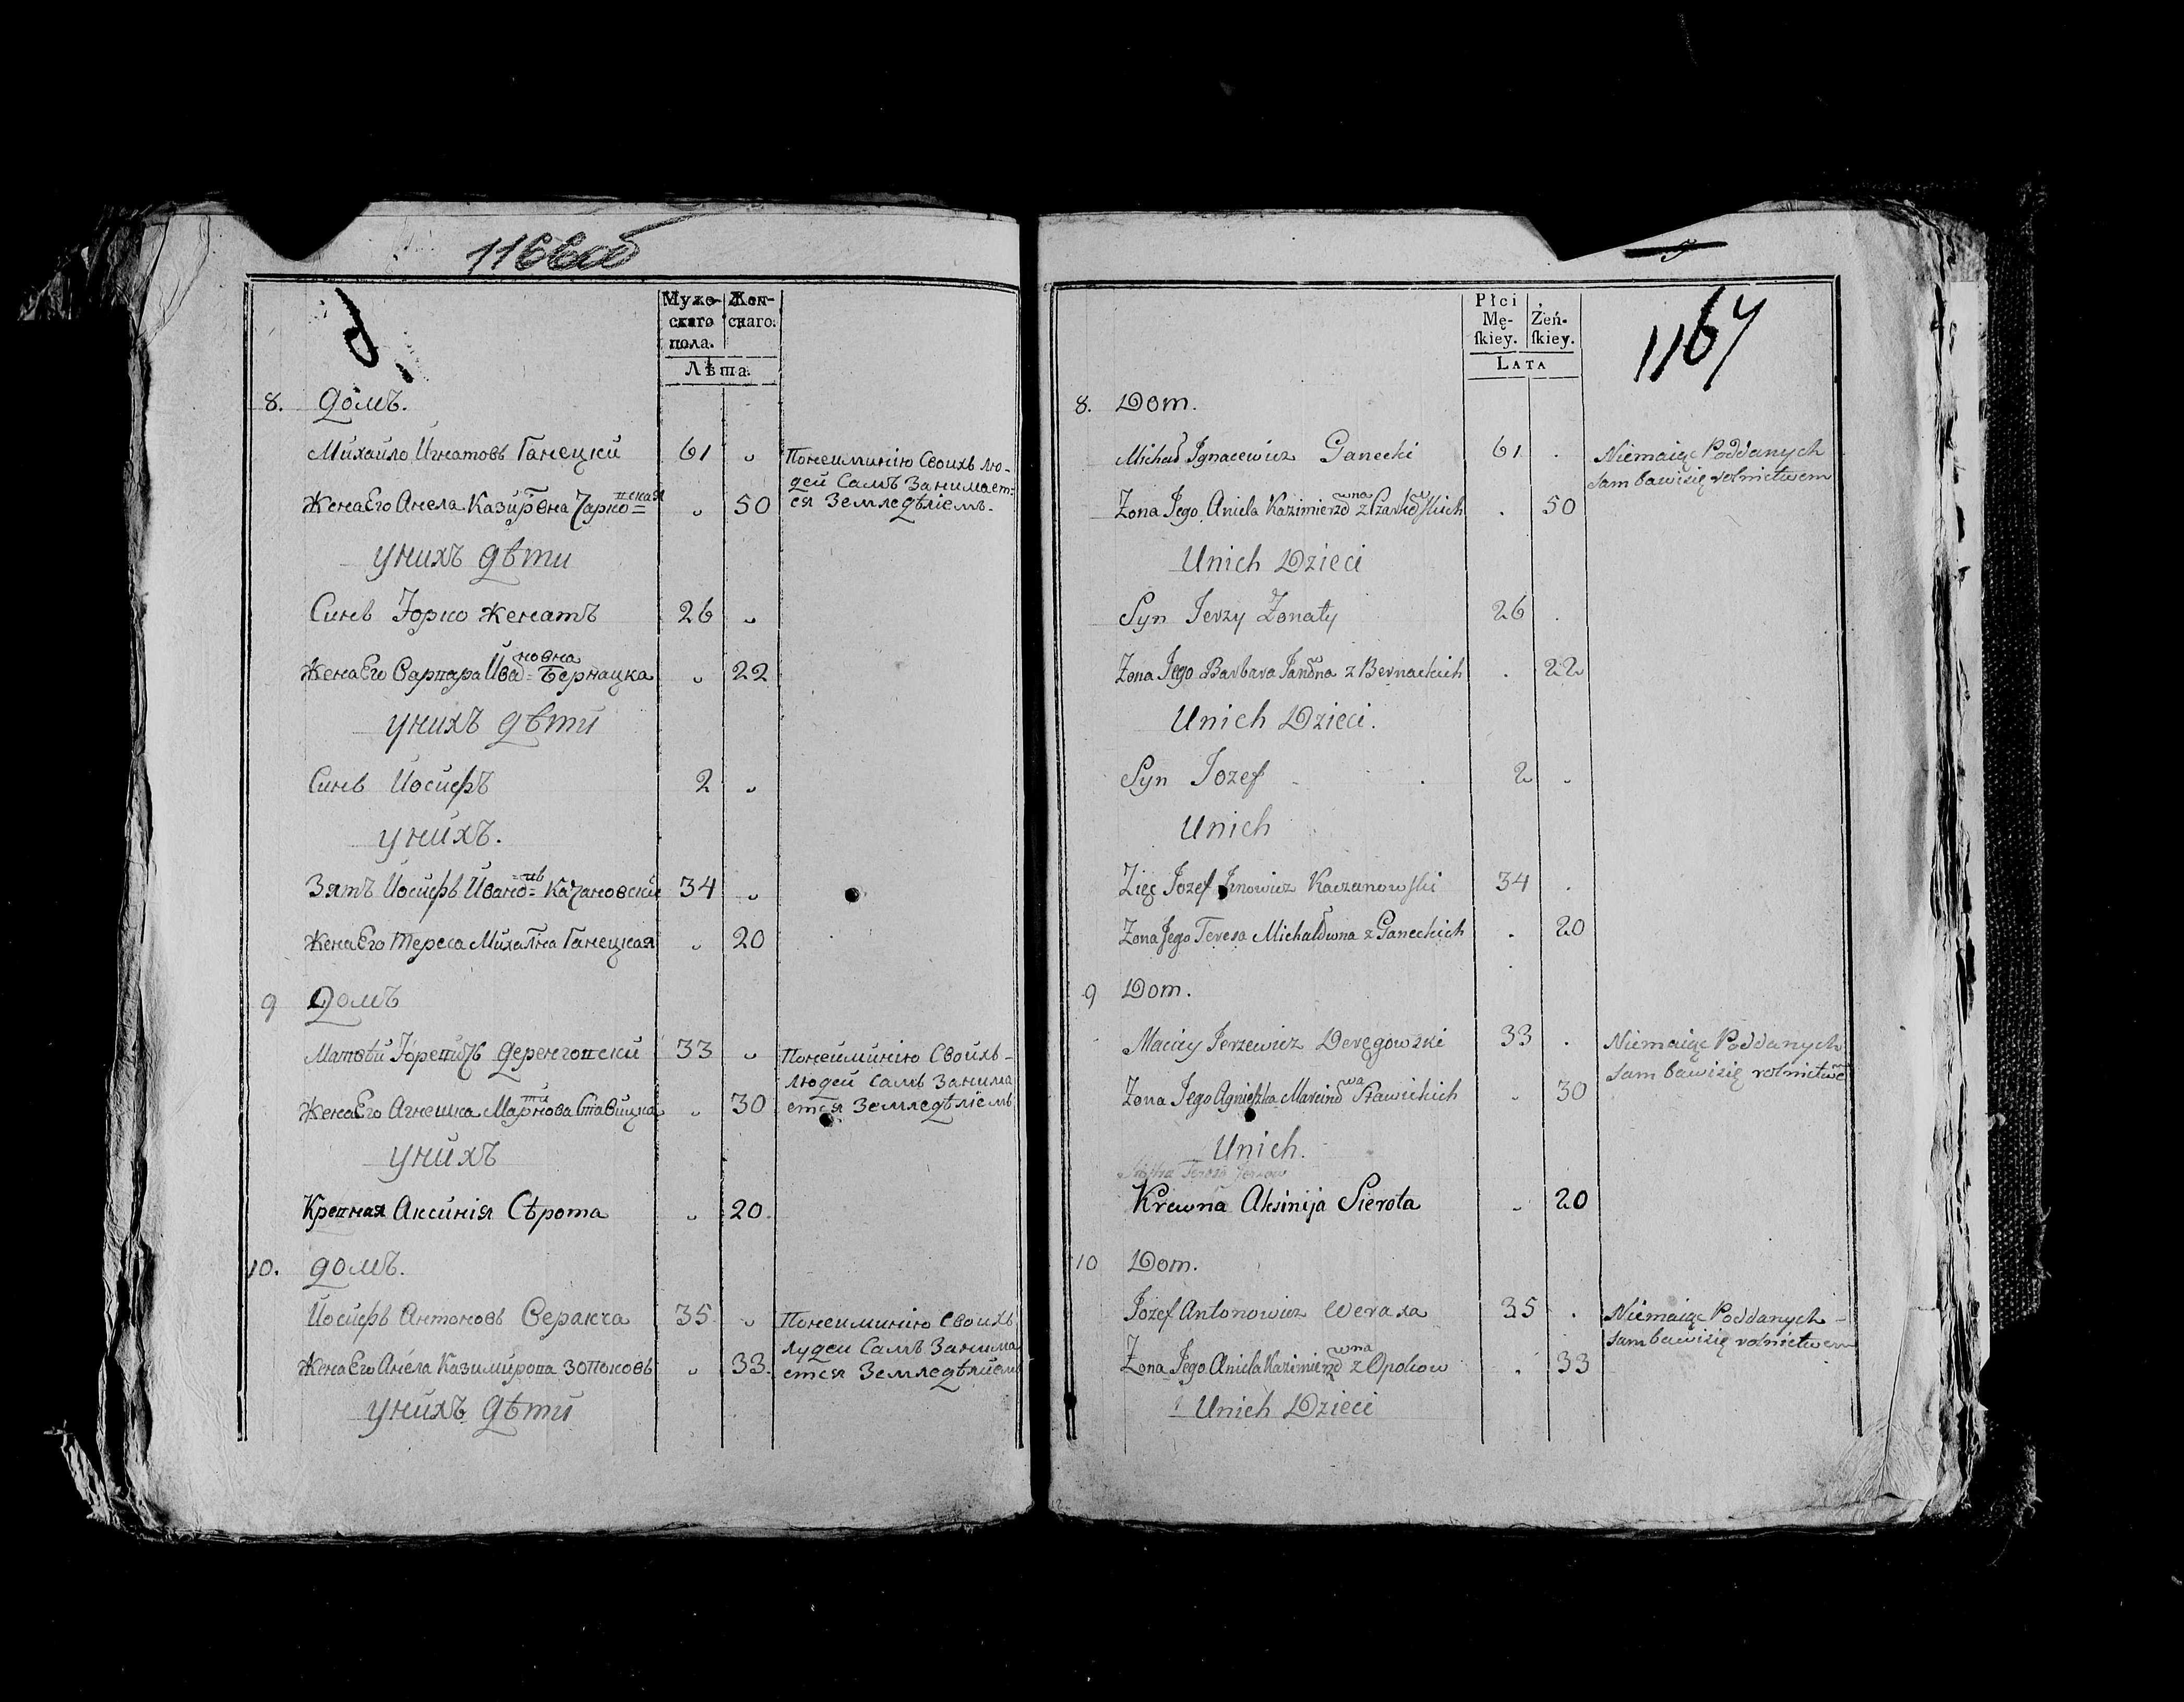 1166об
Мужескаго пола. Женскаго.
Лѣта.
8. Домъ.
Михайло Игнатовъ Ганецкй 61
Понеиминiю Своихъ лю-
дей Самъ Занимает-
ся Земледѣлiемъ.
Жена Его Анела 50
Унихъ дѣти
Синъ Юрко женатъ 26
Жена Его Варвара Ивановна Бернацка 22
Унихъ дѣти
Синъ Йосифъ 2
Унйхъ.
Зятъ Йосифъ Казановскiй 34
Жена Его Тереса Ганецкая 20
9 Домъ
33
Понеиминiю Своихъ
людей Самъ Занима
ется Земледѣлiемъ
Жена Его Агнешка Ставицка 30
Унйхъ
Кревная Аксинiя Сѣрота 20
10. домъ.
Йосифъ Антоновъ Веракса 35
Понеиминiю Своихъ
лудеи Самъ Занима
ется Земледѣлйемъ
Жена Его Анела 33.
Унйхъ дѣти
1167
Płci Męſkiey. Żeńſkiey.
LATA
8. Dom.
Michał Ignacewicz Ganecki 61
Niemaiąc Poddanych
sam bawisię rolnictwem
Zona Jego Aniela Kazimierzowna z Czarkowskich 50
Unich Dzieci
Syn Jerzy Żonaty 26
Zona Jego Barbara Janowna z Bernackich 22
Unich Dzieci.
Syn Jozef 2
Unich
Zięć Jozef Kaczanowski 34
Zona Jego Teresa Michałowna z Ganeckich 20
9 Dom.
Maciey Jerzewicz Deręgowski 33
Niemaiąc Poddanych
sam bawisię rolnictwē
Zona Jego Agnieszka Marcinowa Stawickich 30
Unich.
Krewna Aksinija Sierota 20
10 Dom.
Jozef Antonowicz Weraxa 35
Niemaiąc Poddanych
sam bawisię rolnictwem
Zona Jego Aniela Kazimierzowna z Opokow 33
Unich Dzieci